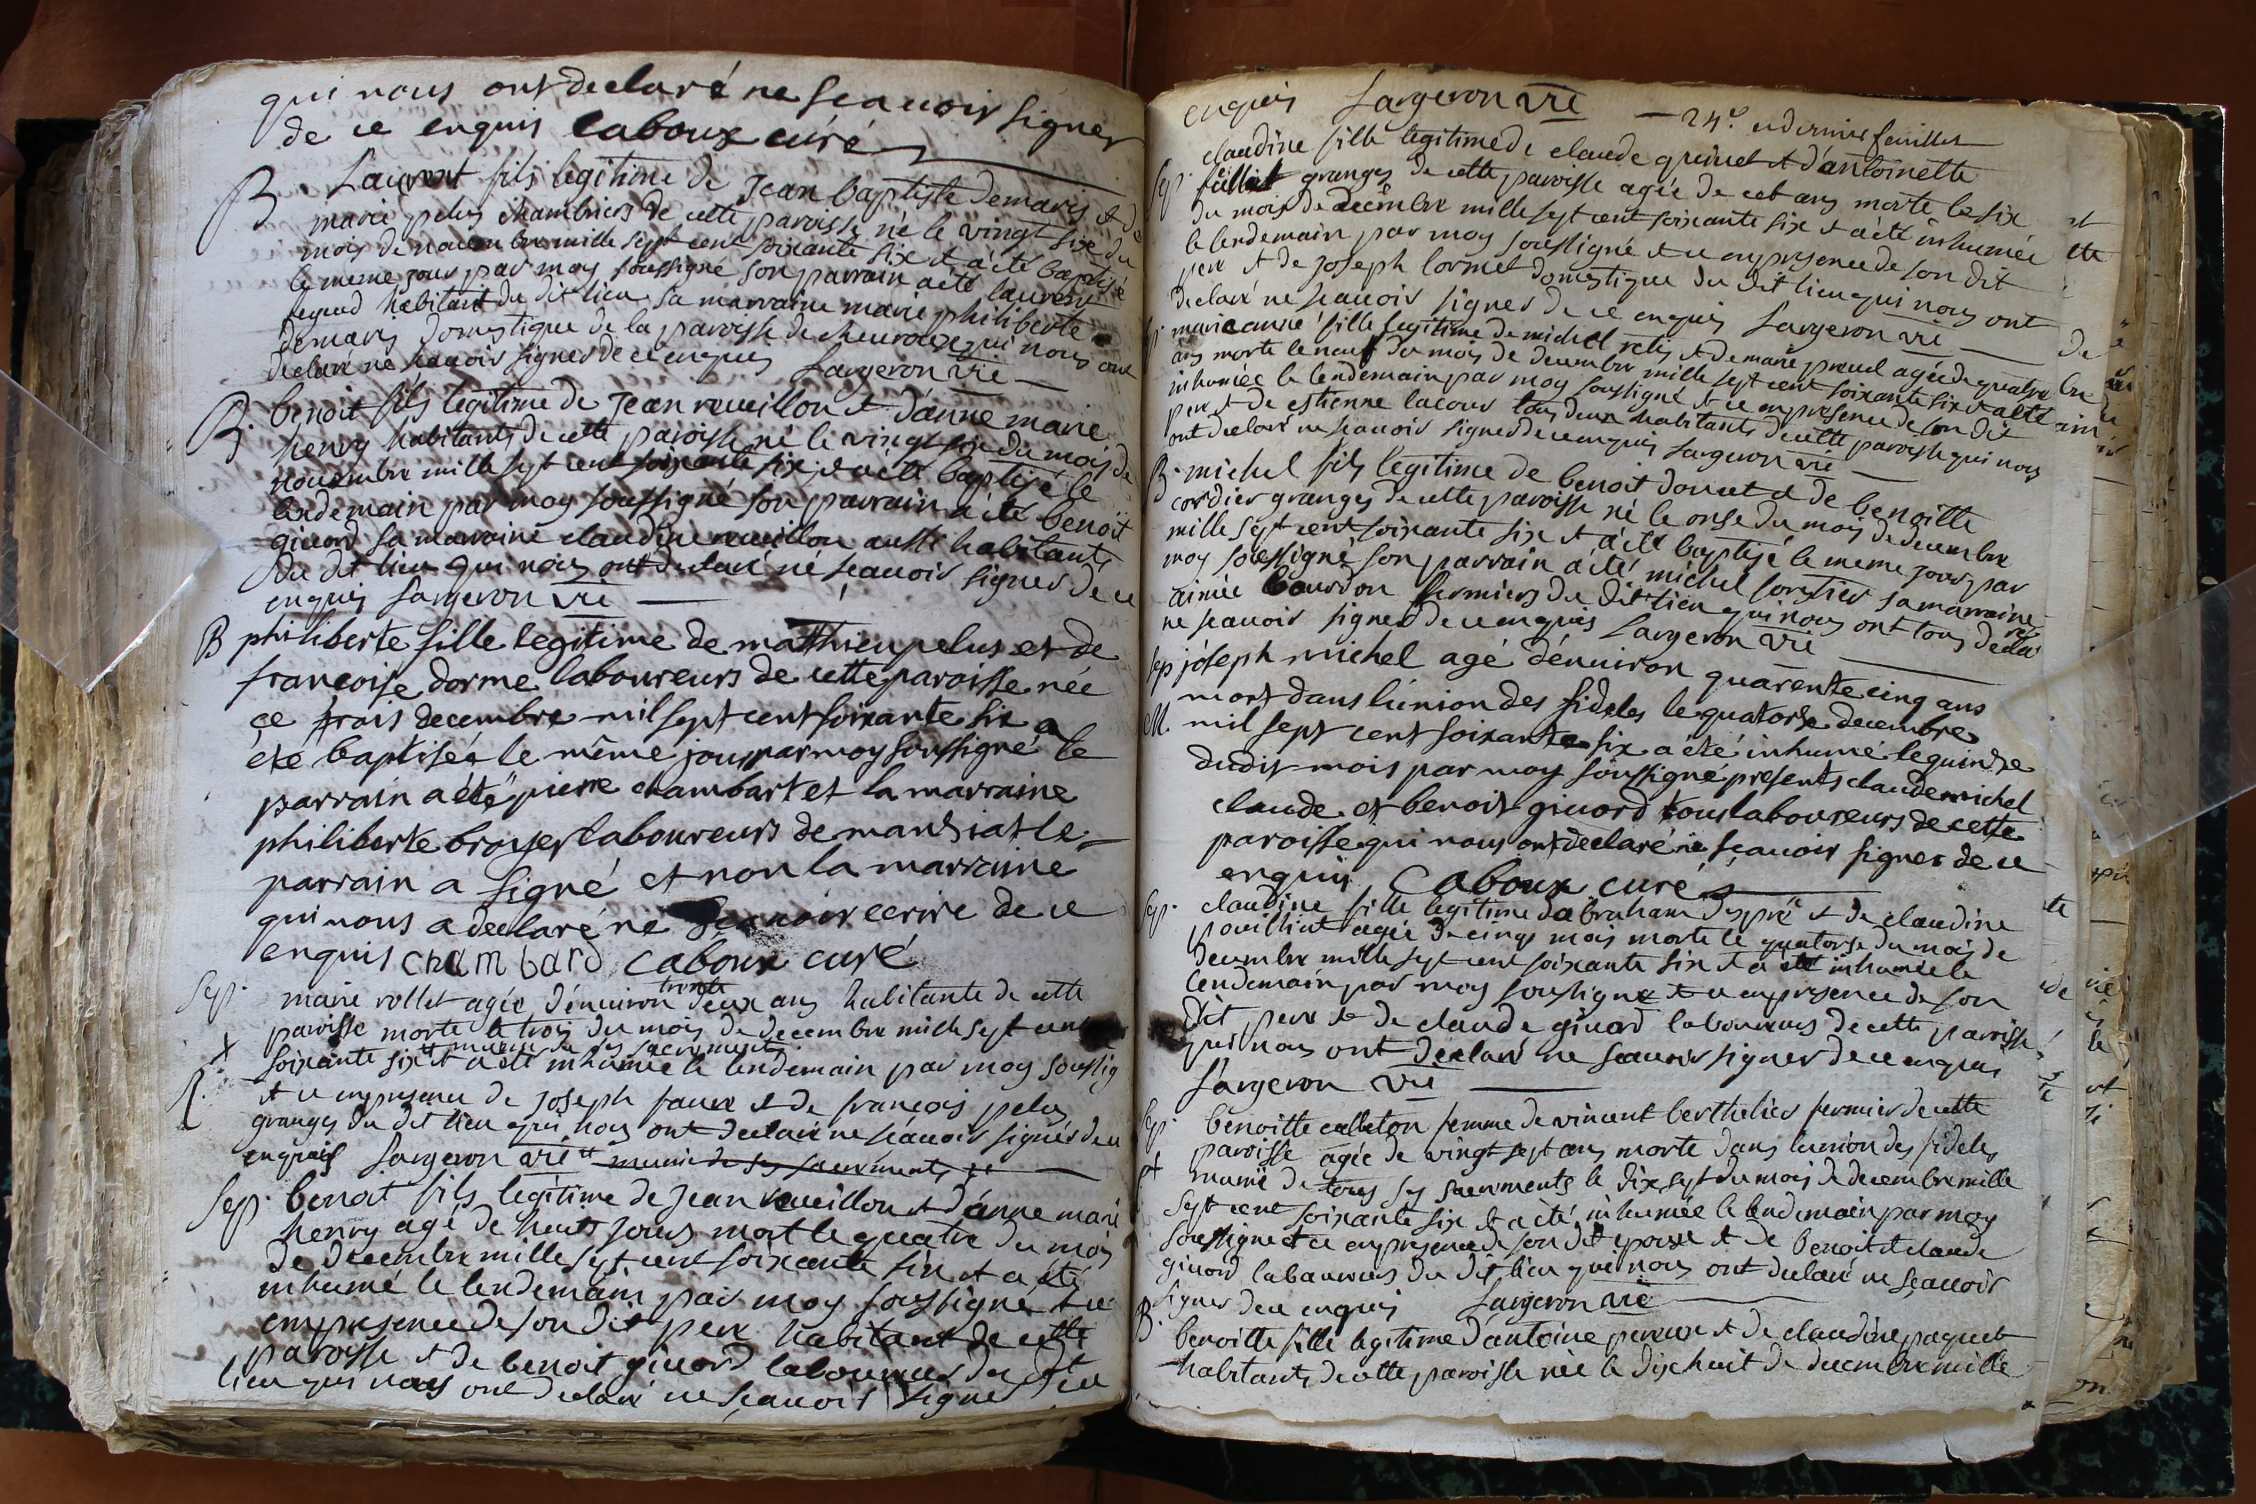 qui nous ont declaré ne sçauoir signer
de ce enquis Caboux curé
B Laurent fils legitime de Jean baptiste demaris et de
marie pelus chambriers de cette paroisse né le vingt six du
mois de nouembre mille sept cent soixante six et a été baptisé
le meme jour par moy soussigné son parrain a été laurent
habitant du dit lieu sa marraine marie philiberte
demaris domestique de la paroisse de cheuroux qui nous ont
declaré ne sçauoir signer de ce enquis Largeron vic
B. benoit fils legitime de Jean reueillon et d'anne marie
henry habitants de cette paroisse né le vingt six du mois de
nouembre mille sept cent soixante six et a été baptisé le
lendemain par moy soussigné son parrain a été benoit
giuord sa marraine claudine reueillon aussi habitants
du dit lieu qui nous ont declaré ne sçauoir signer de ce
enquis Largeron vic
B philiberte fille legitime de matthieu pelus et de
francoise dorme laboureurs de cette paroisse née
ce trois decembre mil sept cent soixante six a
été baptisée le même jour par moy soussigné le
parrain a été pierre chambart et la marraine
philiberte broyer laboureurs de manziat le
parrain a signé et non la marraine
qui nous a declaré ne sçauoir ecrire de ce
enquis chambard Caboux curé
Sep. marie rollet agée d'enuiron trente deux ans habitante de cette
paroisse morte le trois du mois de decembre mille sept cent
soixante six et munie de ses sacrements et a été inhumée le lendemain par moy soussig
et ce en presence de Joseph faure et de francois pelus
granges du dit lieu qui nous ont declaré ne sçauoir signer de ce
enquis Largeron vic munie de ses sacrements
Sep. benoit fils legitime de Jean reueillon et d'anne marie
henry agé de huit jours mort le quatre du mois
de decembre mille sept cent soixante six et a été
inhumé le lendemain par moy soussigné et ce
en presence de son dit pere habitant de cette
paroisse et de benoit giuord laboureur du dit
lieu qui nous ont declaré ne sçauoir signer de ce
enquis Largeron vic
24e et dernier feuillet
Sep. claudine fille legitime de claude et d'antoinette
granges de cette paroisse agée de sept ans morte le six
du mois de decembre mille sept cent soixante six et a été inhumée
le lendemain par moy soussigné et ce en presence de son dit
pere et de joseph lormet domestique du dit lieu qui nous ont
declaré ne sçauoir signer de ce enquis Largeron vic
marie fille legitime de michel et de marie agée de quatre
ans morte le neuf du mois de decembre mille sept cent soixante six et a été
inhumée le lendemain par moy soussigné et ce en presence de son dit
pere et de estienne lacour tous deux habitants de cette paroisse qui nous
ont declaré ne sçauoir signer de ce enquis Largeron vic
B. michel fils legitime de benoit donet et de benoitte
cordier granges de cette paroisse né le onse du mois de decembre
mille sept cent soixante six et a été baptisé le meme jour par
moy soussigné son parrain a été michel sa marraine
aimée bourdon fermiers du dit lieu qui nous ont tous declaré
ne sçauoir signer de ce enquis Largeron vic
Sep joseph michel agé d'enuiron quarente cinq ans
mort dans l'union des fideles le quatorse decembre
M. mil sept cent soixante six a été inhumé le quinse
dudit mois par moy soussigné presents claude michel
claude et benoit giuord tous laboureurs de cette
paroisse qui nous ont declaré ne sçauoir signer de ce
enquis Caboux curé
Sep. claudine fille legitime d'abraham despré et de claudine
pouilliat agée de cinq mois morte le quatorse du mois de
decembre mille sept cent soixante six et a été inhumée le
lendemain par moy soussigné et ce en presence de son
dit pere et de claude giuord laboureurs de cette paroisse
qui nous ont declaré ne sçauoir signer de ce enquis
Largeron vic
Sep. benoitte calleton femme de vincent berthelier fermier de cette
paroisse agée de vingt sept ans morte dans l'union des fideles
munie de tous ses sacrements le dix sept du mois de decembre mille
sept cent soixante six et a été inhumée le lendemain par moy
soussigné et ce en presence de son dit epoux et de benoit et claude
giuord laboureurs du dit lieu qui nous ont declaré ne sçauoir
signer de ce enquis Largeron vic
B. benoitte fille legitime d'antoine pereux et de claudine paquet
habitants de cette paroisse née le dix huit de decembre mille